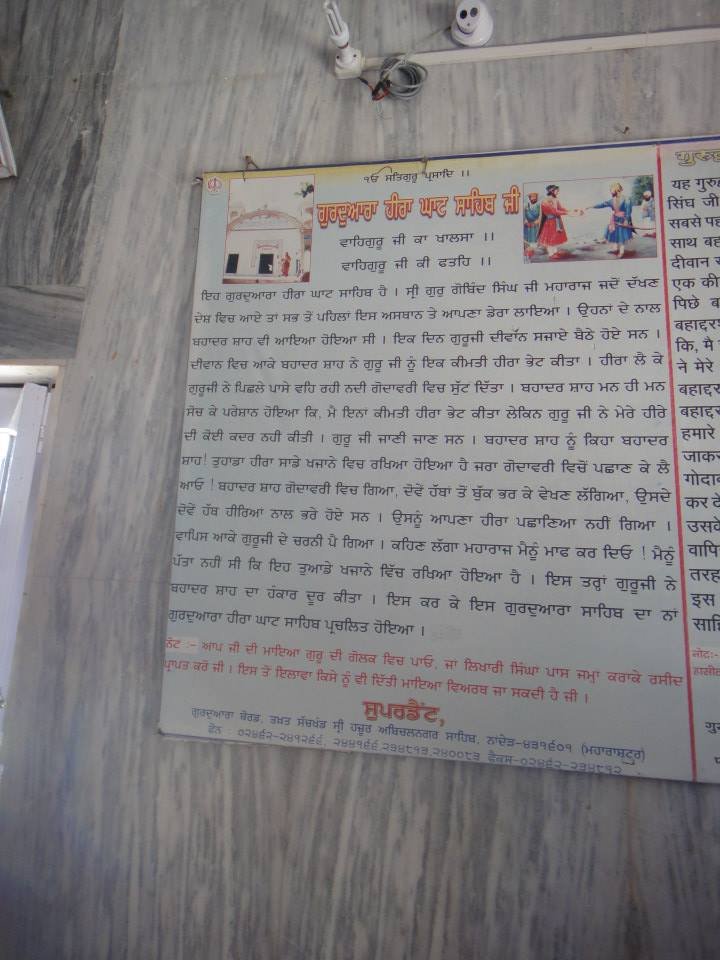 ੧ਓ ਸਤਿਗੁਰੂ ਪ੍ਰਸਾਦਿ ।।
ਗੁਰਦੁਆਰਾ ਹੀਰਾ ਘਾਟ ਸਾਹਿਬ ਜੀ
ਵਾਹਿਗੁਰੂ ਜੀ ਕਾ ਖਾਲਸਾ ।।
ਵਾਹਿਗੁਰੂ ਜੀ ਕੀ ਫਤਹਿ ।।
ਇਹ ਗੁਰਦੁਆਰਾ ਹੀਰਾ ਘਾਟ ਸਾਹਿਬ ਹੈ । ਸ੍ਰੀ ਗੁਰੂ ਗੋਬਿੰਦ ਸਿੰਘ ਜੀ ਮਹਾਰਾਜ ਜਦੋਂ ਦੱਖਣ
ਦੇਸ਼ ਵਿਚ ਆਏ ਤਾਂ ਸਭ ਤੋਂ ਪਹਿਲਾਂ ਇਸ ਅਸਥਾਨ ਤੇ ਆਪਣਾ ਡੇਰਾ ਲਾਇਆ । ਉਹਨਾਂ ਦੇ ਨਾਲ
ਬਹਾਦਰ ਸ਼ਾਹ ਵੀ ਆਇਆ ਹੋਇਆ ਸੀ । ਇਕ ਦਿਨ ਗੁਰੂਜੀ ਦੀਵਾਨ ਸਜਾਏ ਬੈਠੇ ਹੋਏ ਸਨ ।
ਦੀਵਾਨ ਵਿਚ ਆਕੇ ਬਹਾਦਰ ਸ਼ਾਹ ਨੇ ਗੁਰੂ ਜੀ ਨੂੰ ਇਕ ਕੀਮਤੀ ਹੀਰਾ ਭੇਟ ਕੀਤਾ । ਹੀਰਾ ਲੈ ਕੇ
ਗੁਰੂਜੀ ਨੇ ਪਿਛਲੇ ਪਾਸੇ ਵਹਿ ਰਹੀ ਨਦੀ ਗੋਦਾਵਰੀ ਵਿਚ ਸੁੱਟ ਦਿੱਤਾ । ਬਹਾਦਰ ਸ਼ਾਹ ਮਨ ਹੀ ਮਨ
ਸੋਚ ਕੇ ਪਰੇਸ਼ਾਨ ਹੋਇਆ ਕਿ, ਮੈ ਇਨਾਂ ਕੀਮਤੀ ਹੀਰਾ ਭੇਟ ਕੀਤਾ ਲੇਕਿਨ ਗੁਰੂ ਜੀ ਨੇ ਮੇਰੇ ਹੀਰੇ
ਦੀ ਕੋਈ ਕਦਰ ਨਹੀ ਕੀਤੀ । ਗੁਰੂ ਜੀ ਜਾਣੀ ਜਾਣ ਸਨ । ਬਹਾਦਰ ਸ਼ਾਹ ਨੂੰ ਕਿਹਾ ਬਹਾਦਰ
ਸ਼ਾਹ! ਤੁਹਾਡਾ ਹੀਰਾ ਸਾਡੇ ਖਜਾਨੇ ਵਿਚ ਰਖਿਆ ਹੋਇਆ ਹੈ ਜਰਾ ਗੋਦਾਵਰੀ ਵਿਚੋਂ ਪਛਾਣ ਕੇ ਲੈ
ਆਓ ! ਬਹਾਦਰ ਸ਼ਾਹ ਗੋਦਾਵਰੀ ਵਿਚ ਗਿਆ, ਦੋਵੇਂ ਹੱਥਾਂ ਤੋਂ ਬੁੱਕ ਭਰ ਕੇ ਵੇਖਣ ਲੱਗਿਆ, ਉਸਦੇ
ਦੋਵੇਂ ਹੱਥ ਹੀਰਿਆਂ ਨਾਲ ਭਰੇ ਹੋਏ ਸਨ । ਉਸਨੂੰ ਆਪਣਾ ਹੀਰਾ ਪਛਾਣਿਆ ਨਹੀਂ ਗਿਆ ।
ਵਾਪਿਸ ਆਕੇ ਗੁਰੂਜੀ ਦੇ ਚਰਨੀ ਪੈ ਗਿਆ । ਕਹਿਣ ਲੱਗਾ ਮਹਾਰਾਜ ਮੈਨੂੰ ਮਾਫ ਕਰ ਦਿਓ ! ਮੈਨੂੰ
ਪੱਤਾ ਨਹੀਂ ਸੀ ਕਿ ਇਹ ਤੁਆਡੇ ਖਜਾਨੇ ਵਿੱਚ ਰਖਿਆ ਹੋਇਆ ਹੈ । ਇਸ ਤਰ੍ਹਾਂ ਗੁਰੂਜੀ ਨੇ
ਬਹਾਦਰ ਸ਼ਾਹ ਦਾ ਹੰਕਾਰ ਦੂਰ ਕੀਤਾ । ਇਸ ਕਰ ਕੇ ਇਸ ਗੁਰਦੁਆਰਾ ਸਾਹਿਬ ਦਾ ਨਾਂ
ਗੁਰਦੁਆਰਾ ਹੀਰਾ ਘਾਟ ਸਾਹਿਬ ਪ੍ਰਚਲਿਤ ਹੋਇਆ ।
ਨੋਟ :- ਆਪ ਜੀ ਦੀ ਮਾਇਆ ਗੁਰੂ ਦੀ ਗੋਲਕ ਵਿਚ ਪਾਓ, ਜਾਂ ਲਿਖਾਰੀ ਸਿੰਘਾ ਪਾਸ ਜਮ੍ਹਾ ਕਰਾਕੇ ਰਸੀਦ
ਪ੍ਰਾਪਤ ਕਰੋ ਜੀ । ਇਸ ਤੋਂ ਇਲਾਵਾ ਕਿਸੇ ਨੂੰ ਵੀ ਦਿੱਤੀ ਮਾਇਆ ਵਿਅਰਥ ਜਾ ਸਕਦੀ ਹੈ ਜੀ ।
ਸੁਪਰਡੈਂਟ,
ਗੁਰਦੁਆਰਾ ਬੋਰਡ, ਤਖਤ ਸੱਚਖੰਡ ਸ੍ਰੀ ਹਜ਼ੂਰ ਅਬਿਚਲਨਗਰ ਸਾਹਿਬ, ਨਾਂਦੇੜ-੪੩੧੬੦੧ (ਮਹਾਰਾਸ਼ਟਰ)
ਫੋਨ : ੦੨੪੬੨-੨੪੧੨੬੬, ੨੪੪੧੬੬,੨੩੪੮੧੩,੨੪੦੦੮੩ ਫੈਕਸ-੦੨੪੬੨-੨੩੪੮੧੨
यह गुरु
सिंघ जी
सबसे पह
साथ बह
दीवान स
एक की
पिछे ब
बहाद्दरश
कि, मै
ने मेरे
बहाद्दर
बहाद्दर
हमारे
जाकर
गोदाव
कर दे
उसके
वापि
तरह
इस
साहि
नोट:-
हासील